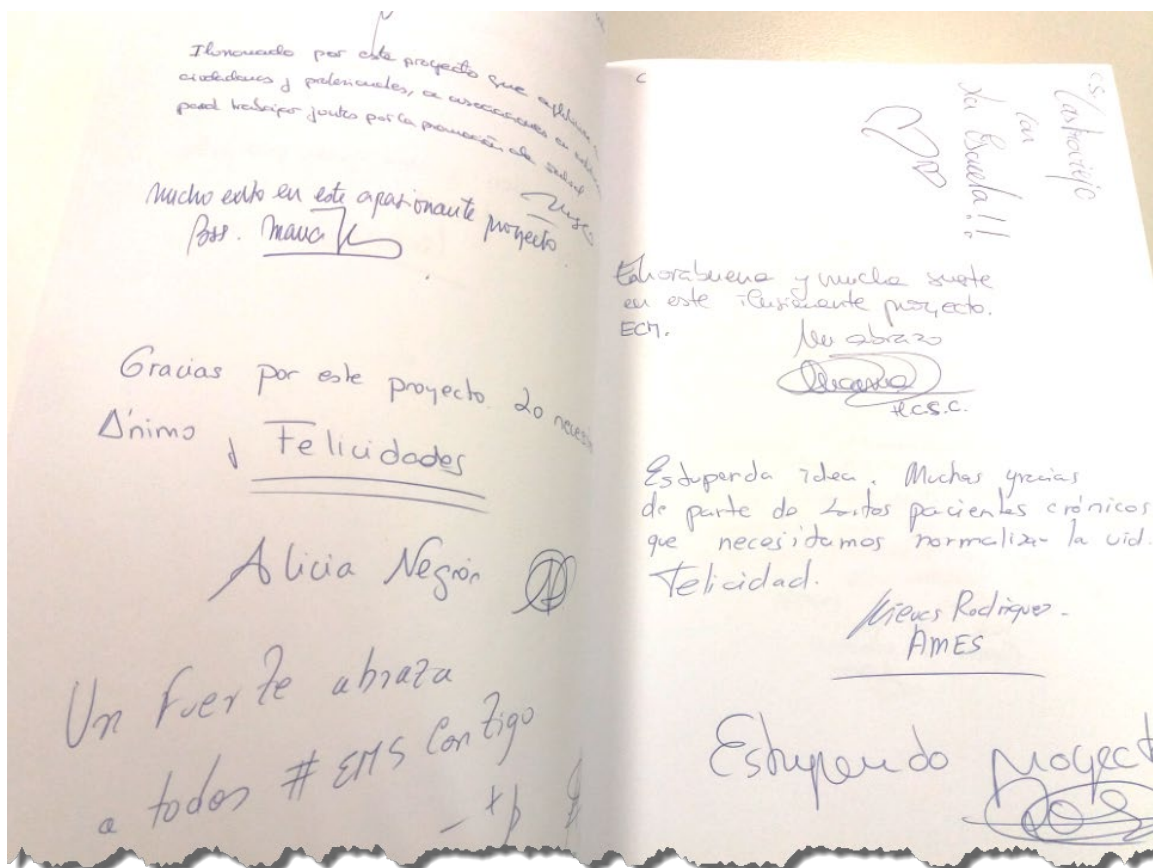 Ilusionado por este proyecto que
ciudadanos y profesionales, a asociaciones
para trabajar juntos por la promoción de salud
mucho exito en este apasionante proyecto.
Bss.
Gracias por este proyecto. Lo
Ánimo y Felicidades
Alicia Negrón
Un Fuerte abrazo
a todos # EMS Contigo
C.S. Castroviejo
con
la Escuela!!
Enhorabuena y mucha suerte
en este ilusionante proyecto.
ECM.
Un abrazo
H.C.S.C.
Estupenda idea. Muchas gracias
de parte de tantos pacientes crónicos
que necesitamos normalizar la vid.
Felicidad.
Nieves Rodríguez.
AMES
Estupendo Proyect